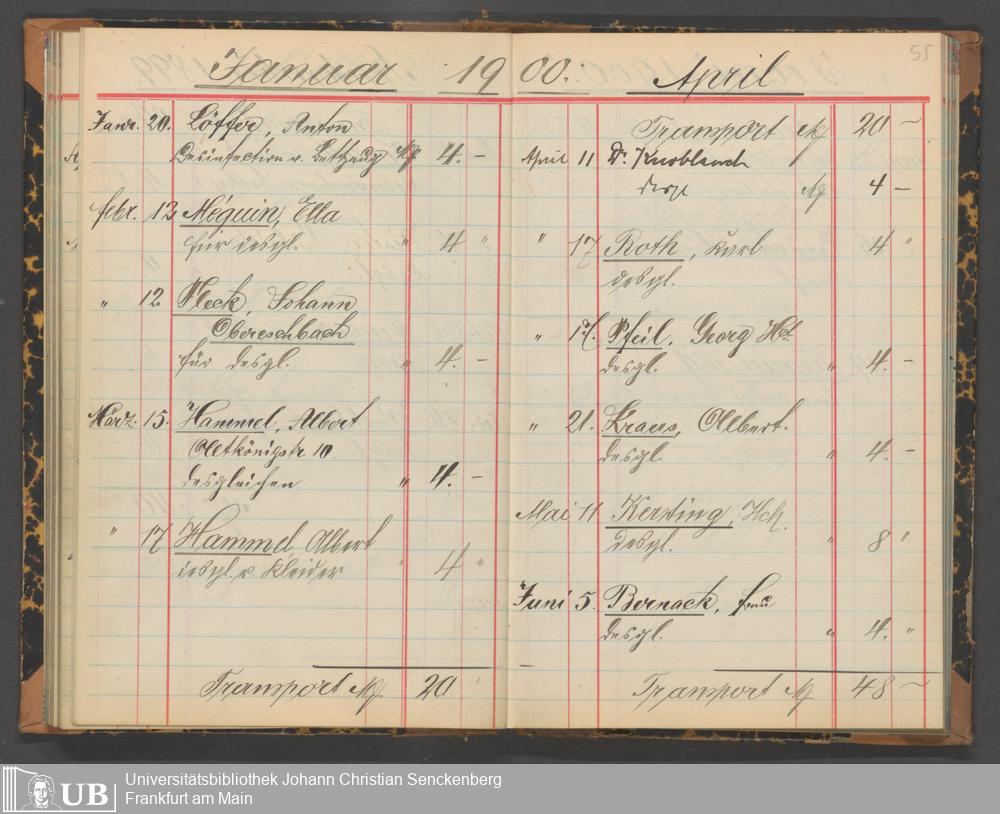 Januar 1900. April
55
Janr. 20. Löffer, Anton
Desinfection v. Bettzeug M 4. –
febr. 12 Méguin, Ella
für desgl. " 4 "
" 12 Fleck, Johann
Obereschbach
für desgl. " 4. –
März 15. Hammel, Albert
Altkönigstr 10
desgleichen " 4. –
" 17 Hammel, Albert
desgl. v. Kleider " 4 "
Transport M 20
Transport M 20 –
April 11 Dr. Knoblauch
M 4 –
" 17 Roth, Karl 4 "
desgl.
" 17. Pfeil, Georg Hch.
desgl. " 4. –
" 21. Kraus, Albert.
desgl. " 4. –
Mai 11 Kersting, Hch.
desgl. " 8 "
Juni 5. Bernack, frau
desgl. " 4. "
Transport M 48 –
UB
Universitätsbibliothek Johann Christian Senckenberg
Frankfurt am Main